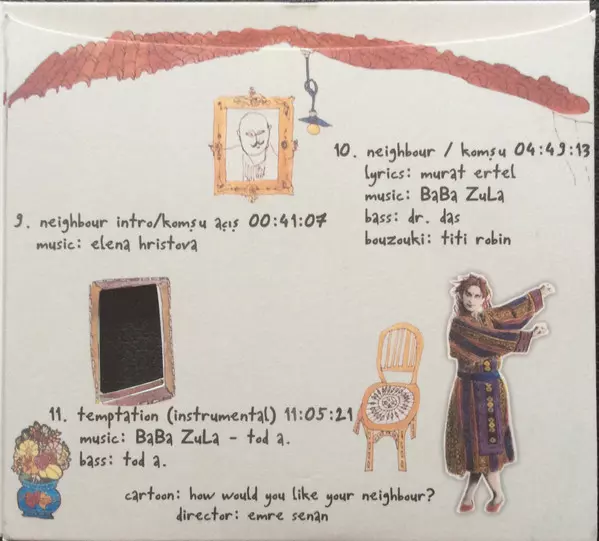 10. neighbour / komşu 04:49:13
lyrics: murat ertel
music: BaBa ZuLa
bass: dr. das
bouzouki: titi robin
9. neighbour intro/komşu açış 00:41:07
music: elena hristova
11. temptation (instrumental) 11:05:21
music: BaBa ZuLa - tod a.
bass: tod a.
cartoon: how would you like your neighbour?
director: emre senan